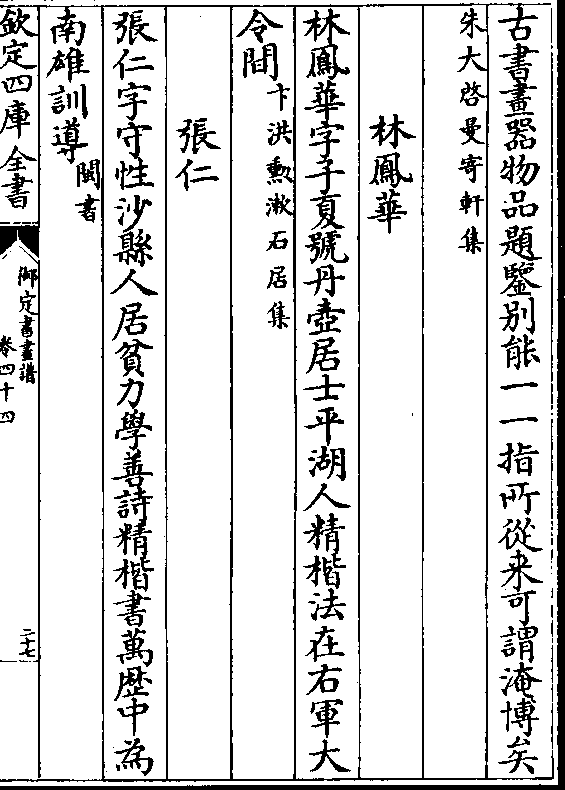 古書畫器物品題鑒别能一一指所從来可謂淹博矣
朱大啓曼寄軒集
林鳳華
林鳳華字子夏號丹壺居士平湖人精楷法在右軍大
令間卞洪勲漱石居集
張仁
張仁字守性沙縣人居貧力學善詩精楷書萬歴中為
南雄訓導閩書
欽定四庫全書
御定書畫譜
卷四十四
二十七